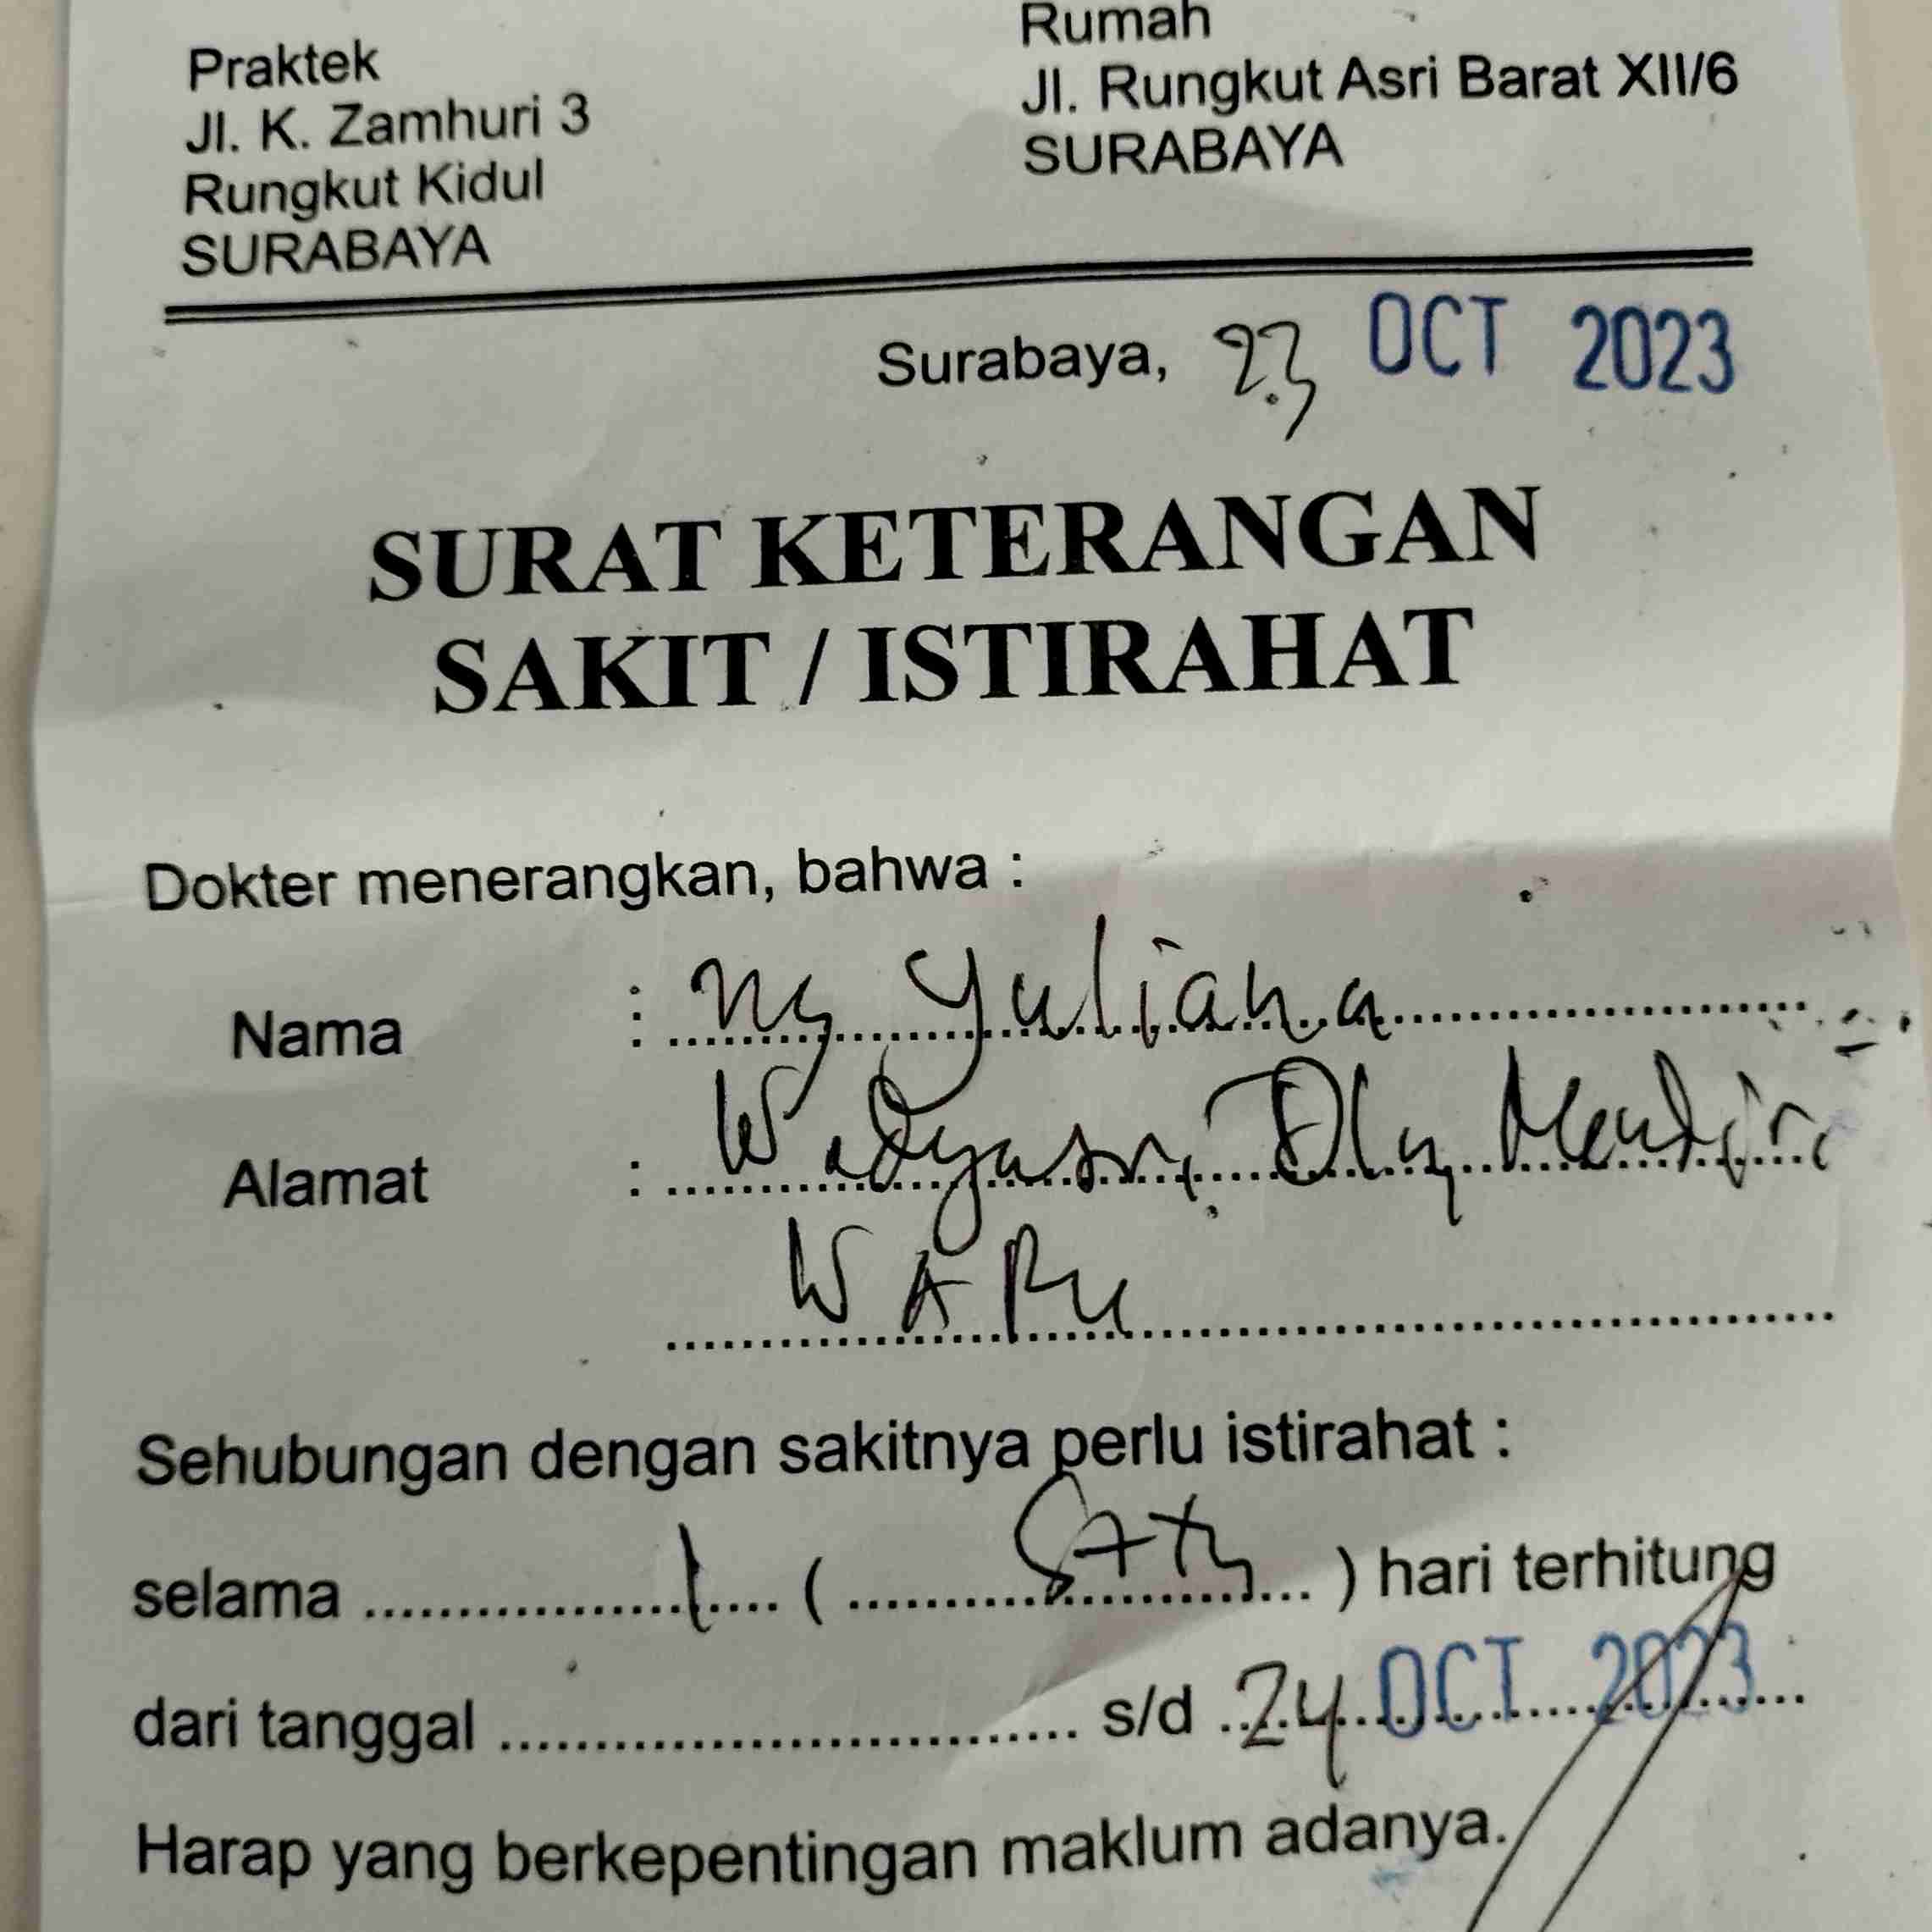 Praktek
Jl. K. Zamhuri 3
Rungkut Kidul
SURABAYA
Rumah
Jl. Rungkut Asri Barat XII/6
SURABAYA
Surabaya, 23 OCT 2023
SURAT KETERANGAN
SAKIT / ISTIRAHAT
Dokter menerangkan, bahwa :
Nama : Ny Yuliana
Alamat :
WARU
Sehubungan dengan sakitnya perlu istirahat :
selama 1 ( Satu ) hari terhitung
dari tanggal s/d 24 OCT 2023
Harap yang berkepentingan maklum adanya.